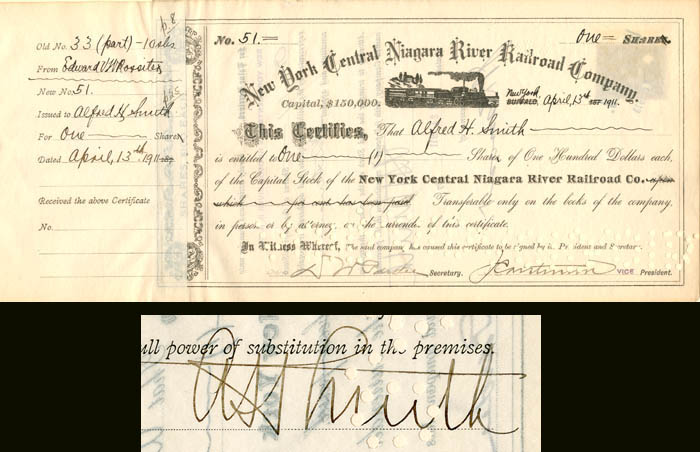 p. 8
Old No. 33 (part) - 10 shs
From Edward V. W. Rossiter
New No. 51.
Issued to Alfred H. Smith
For One Share
Dated April, 13th 1911
Received the above Certificate
No.
No. 51.
One SHARES.
New York Central Niagara River Railroad Company.
Capital, $150,000.
New York, BUFFALO, April, 13th 187 1911.
This Certifies, That Alfred H. Smith
is entitled to One (1) Shares of One Hundred Dollars each,
of the Capital Stock of the New York Central Niagara River Railroad Co. upon
which has been paid. Transferable only on the books of the company,
in person or by attorney, on the surrender of this certificate.
In Witness Whereof, the said company has caused this certificate to be signed by its President and Secretary.
Secretary. VICE President.
ull power of substitution in the premises.
AH Smith